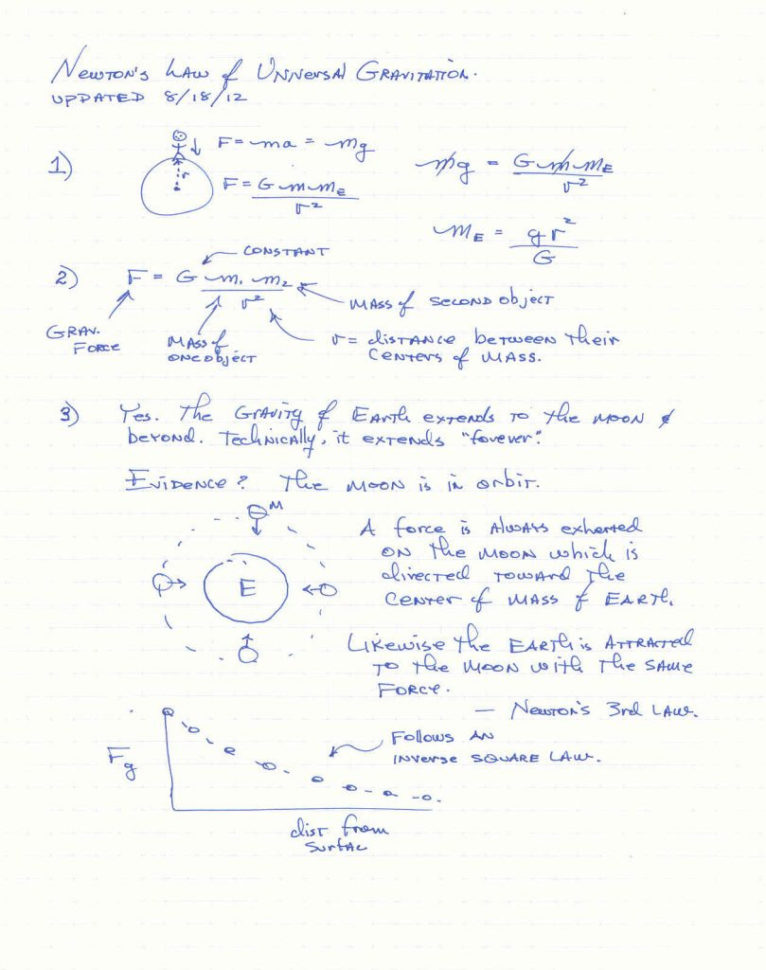 Newton's Law of Universal Gravitation.
UPDATED 8/18/12
1)
F = ma = mg
r
F = G m mE / r²
mg = G m mE / r²
mE = g r² / G
CONSTANT
2) F = G m₁ m₂ / r²
MASS of SECOND Object
GRAV. FORCE
MASS of ONE Object
r = distance between their
Centers of MASS.
3) Yes. The Gravity of Earth extends to the moon &
beyond. Technically, it extends "forever".
Evidence? The moon is in orbit.
M
E
A force is Always exherted
on the moon which is
directed toward the
Center of mass of EARTH.
Likewise the EARTH is Attracted
to the moon with the same
Force.
— Newton's 3rd Law.
Follows AN
inverse SQUARE LAW.
Fg
dist from
surfac